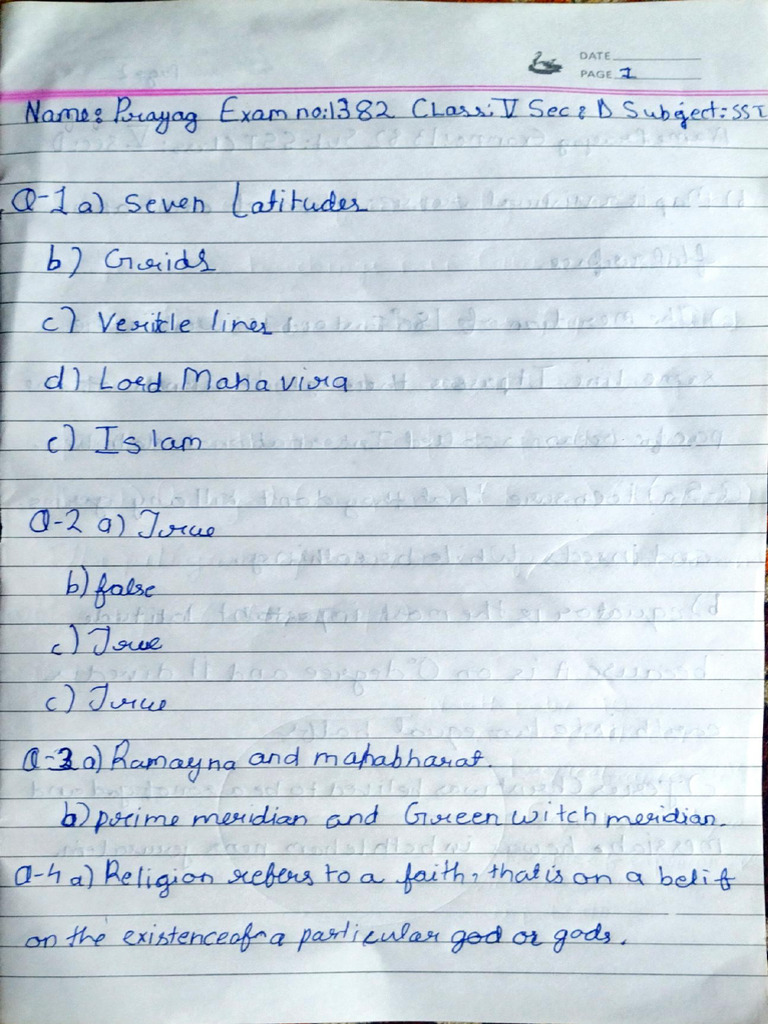 DATE
PAGE 1
Name: Prayag Exam no:1382 Class: V Sec: D Subject: SST
Q-1 a) Seven Latitudes
b) Grids
c) Veritcle lines
d) Lord Mahavira
c) Islam
Q-2 a) True
b) false
c) True
c) True
Q-3 a) Ramayna and mahabharat.
b) prime meridian and Green witch meridian.
Q-4 a) Religion refers to a faith, that is on a belif
on the existence of a particular god or gods.